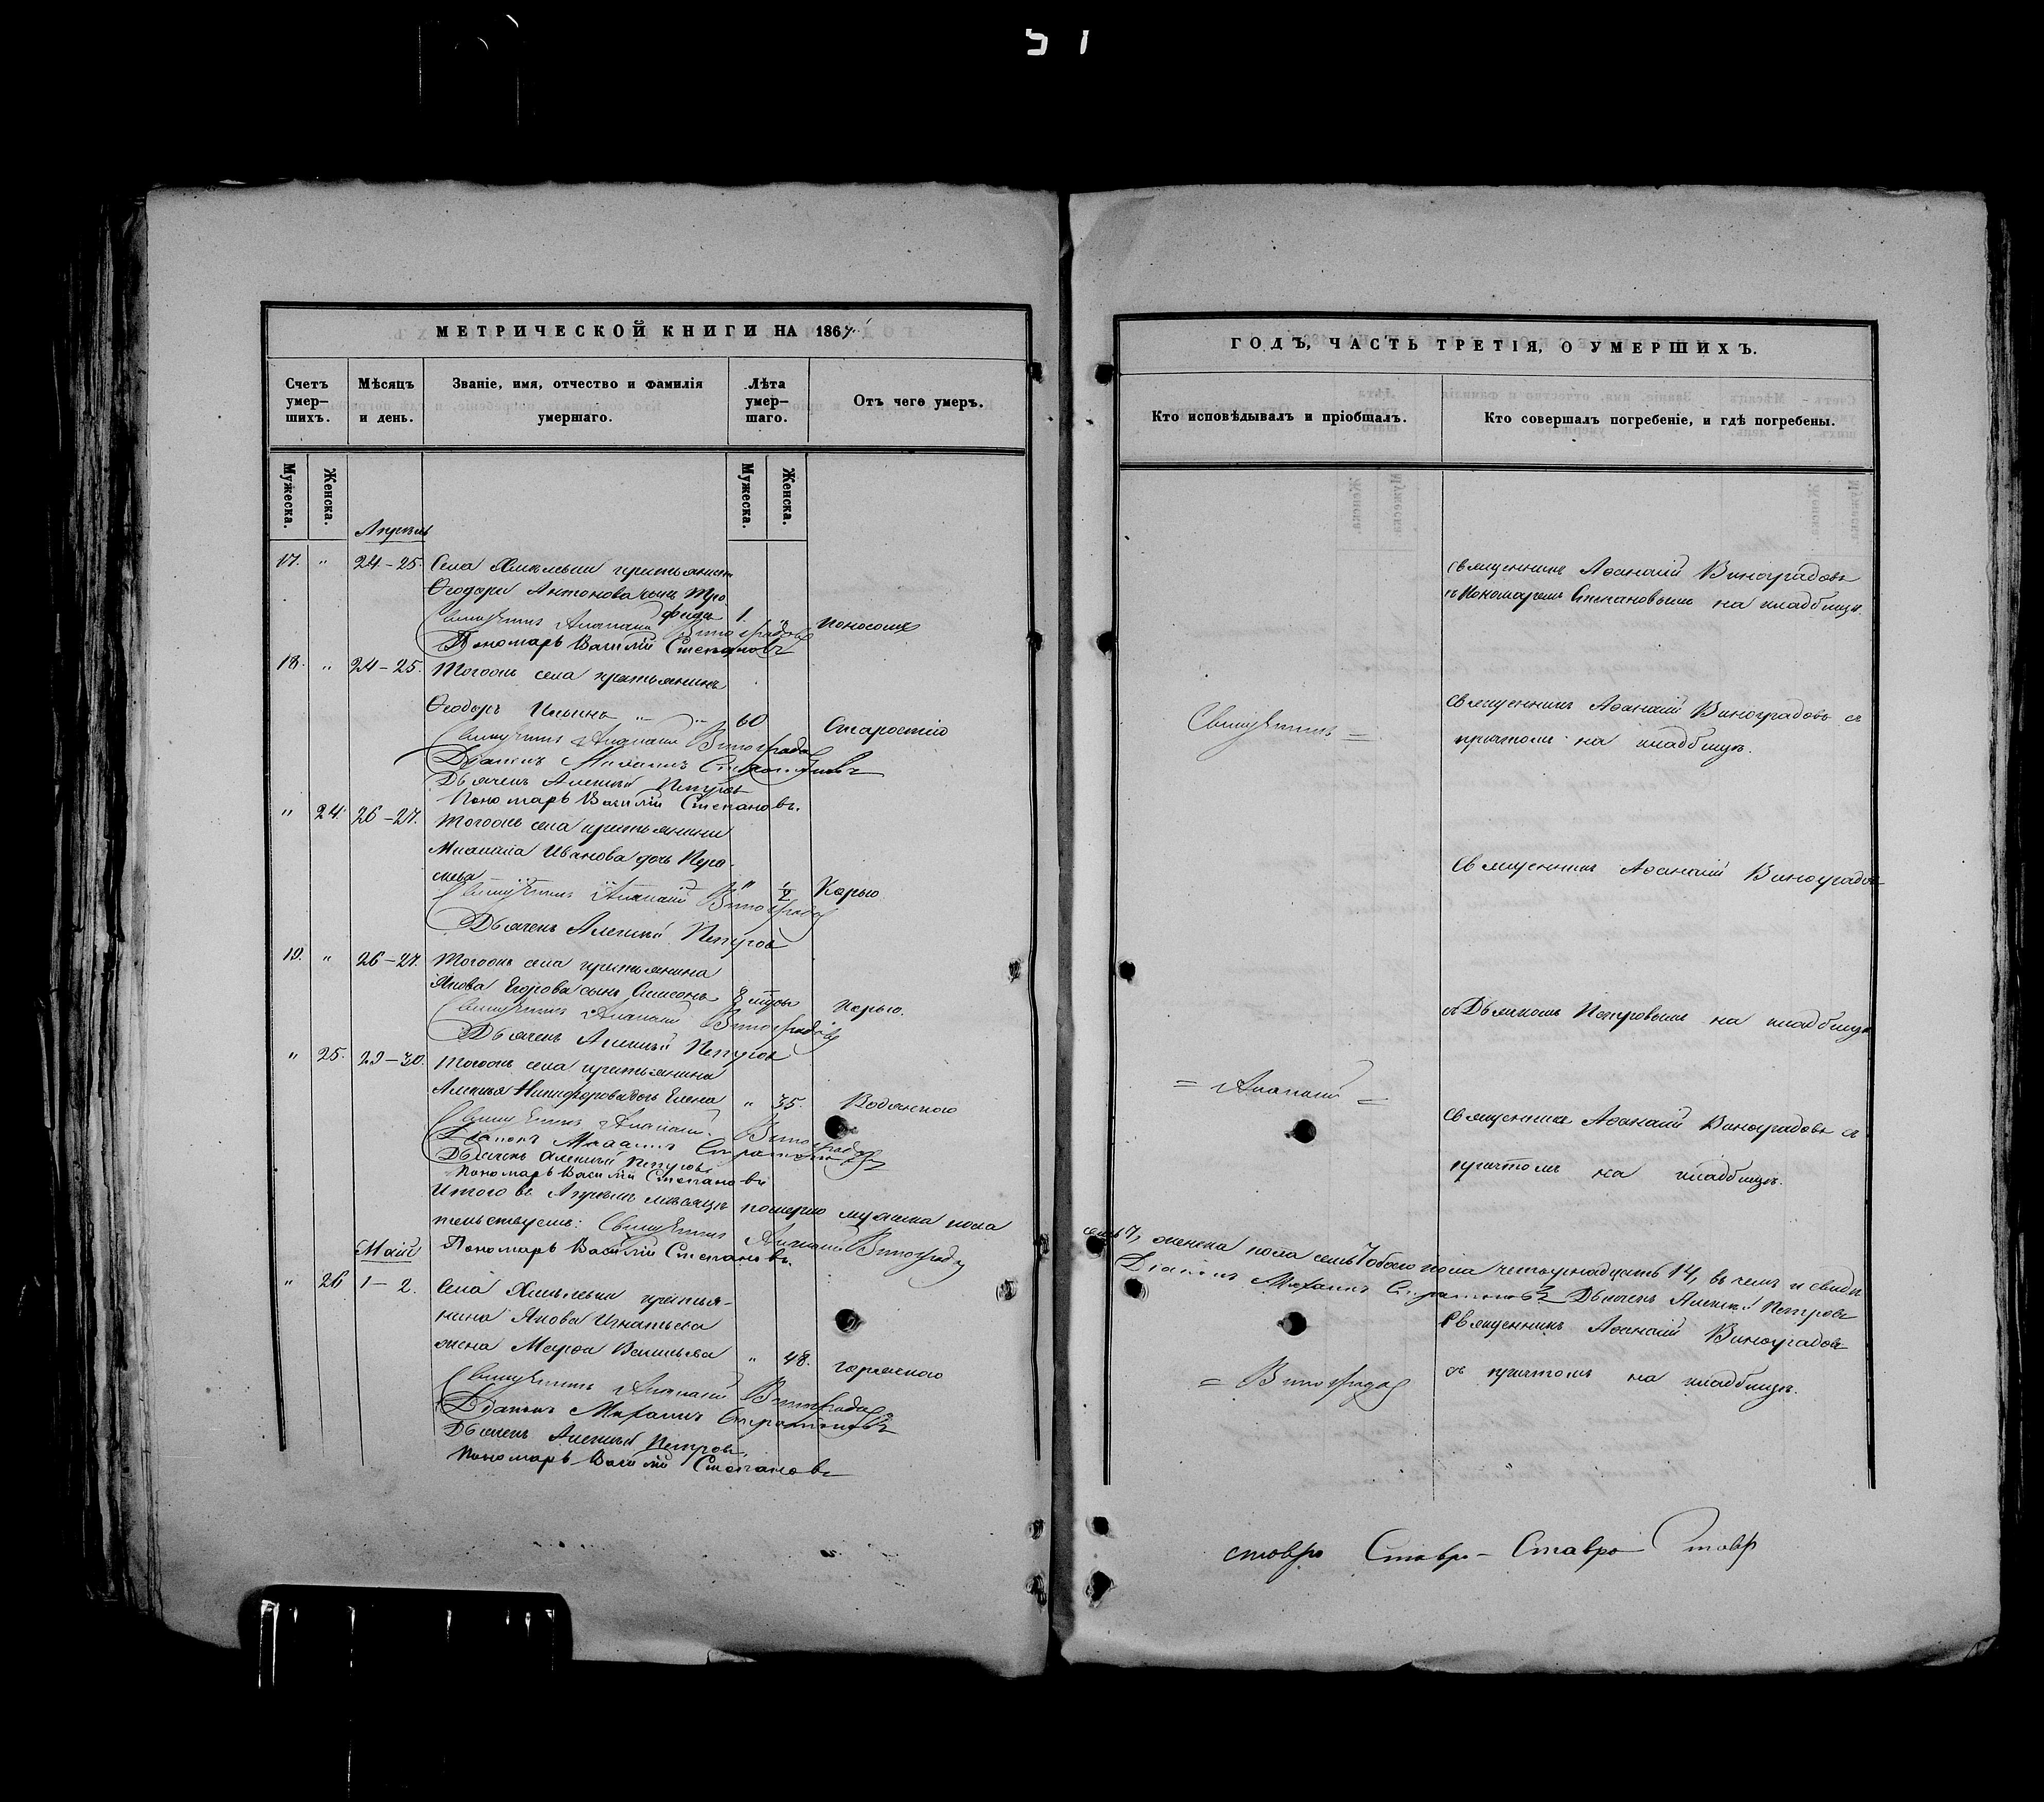 51
МЕТРИЧЕСКОЙ КНИГИ НА 1867
Счетъ умер-шихъ.
Мѣсяцъ и день.
Званіе, имя, отчество и фамилія умершаго.
Лѣта умер-шаго.
Отъ чего умеръ.
Мужеска.
Женска.
Мужеска.
Женска.
Апрѣль
17. " 24-25. Села крестьянина
Ѳеодора Антонова сынъ Тро
фимъ 1. " Поносомъ
Священникъ Афанасій Виноградовъ
Пономарь Василій Степановъ
18. " 24-25. Тогожъ села крестьянинъ
Ѳеодоръ Ильинъ " 60 Старостію
Священникъ Афанасій Виноградовъ
Діаконъ Михаилъ
Дьячекъ Алексѣй Петровъ
Пономарь Василій Степановъ.
" 24. 26-27. Тогожъ села крестьянина
Михаила Иванова дочь
" Корью
Священникъ Афанасій Виноградовъ
Дьячекъ Алексѣй Петровъ
19. " 26-27. Тогожъ села крестьянина
Якова Егорова сынъ Симеонъ Корью.
Священникъ Афанасій Виноградовъ
Дьячекъ Алексѣй Петровъ
" 25. 29-30. Тогожъ села крестьянина
Алексѣя Никифорова дочь Елена " 35. Водянкою
Священникъ Афанасій Виноградовъ
Діаконъ Михаилъ
Дьячекъ Алексѣй Петровъ
Пономарь Василій Степановъ
Итого въ Апрѣлѣ мѣсяцѣ померло мужеска пола
тельствуемъ: Священникъ Афанасій Виноградовъ
Пономарь Василій Степановъ.
Май
" 26 1-2. Села крестья-
нина Якова Игнатьева
жена Марѳа Васильева " 48. горячкою
Священникъ Афанасій Виноградовъ
Діаконъ Михаилъ
Дьячекъ Алексѣй Петровъ
Пономарь Василій Степановъ
ГОДЪ, ЧАСТЬ ТРЕТІЯ, О УМЕРШИХЪ.
Кто исповѣдывалъ и пріобщалъ.
Кто совершалъ погребеніе, и гдѣ погребены.
Священникъ Аѳанасій Виноградовъ
съ Пономаремъ Степановымъ на кладбищѣ.
Священникъ =
Священникъ Аѳанасій Виноградовъ съ
причтомъ на кладбищѣ.
Священникъ Аѳанасій Виноградовъ
съ Дьячкомъ Петровымъ на кладбищѣ
= Афанасій =
Священникъ Аѳанасій Виноградовъ съ
причтомъ на кладбищѣ.
семь 7, женска пола семь 7 обоего пола четырнадцать 14, въ чемъ и свидѣ
Діаконъ Михаилъ Дьячекъ Алексѣй Петровъ
Священникъ Аѳанасій Виноградовъ
= Виноградовъ
съ причтомъ на кладбищѣ.
ставро Ставро - Ставро Ставр